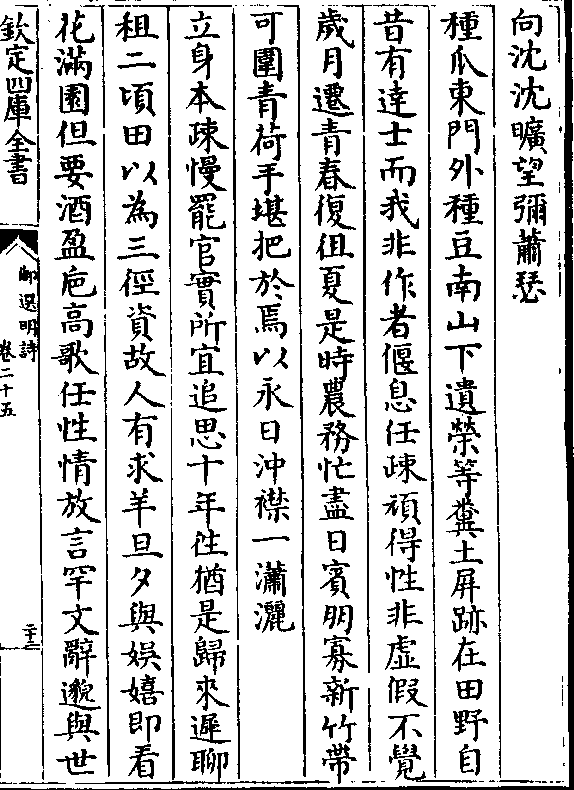 向沈沈曠望彌蕭瑟
種瓜東門外種豆南山下遺榮等糞土屏跡在田野自
昔有達士而我非作者偃息任疎頑得性非虛假不覺
歲月遷青春復徂夏是時農務忙盡日賓朋寡新竹帶
可圍青荷手堪把於焉以永日沖襟一瀟灑
立身本疎慢罷官實所宜追思十年徃猶是歸來遲聊
租二頃田以為三徑資故人有求羊旦夕與娛嬉即看
花滿園但要酒盈巵高歌任性情放言罕文辭邈與世
欽定四庫全書
御選明詩
卷二十五
二十三